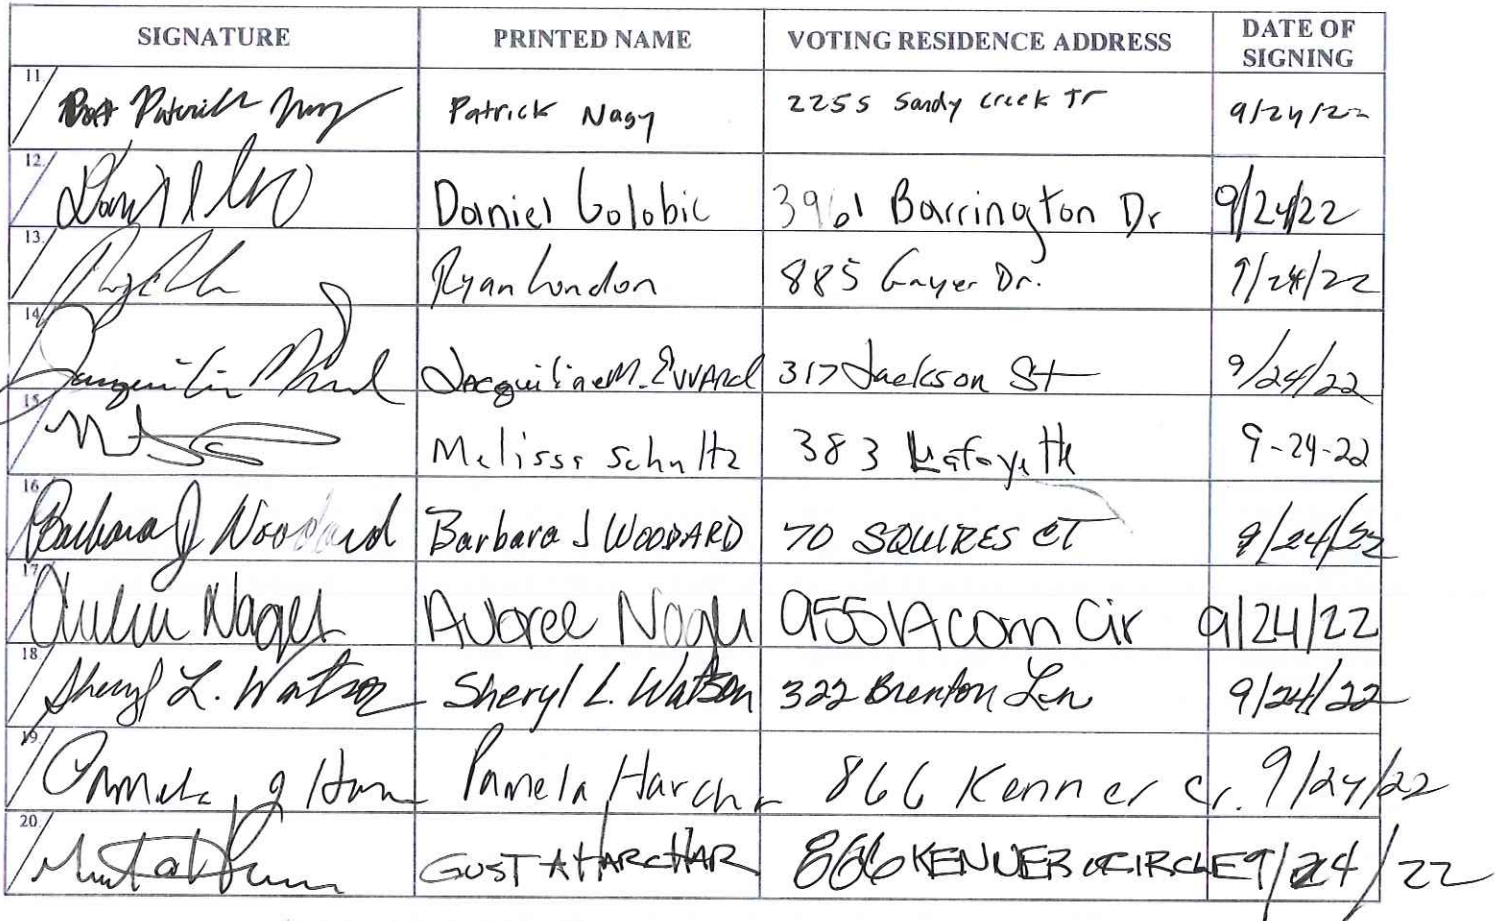 SIGNATURE PRINTED NAME VOTING RESIDENCE ADDRESS DATE OF SIGNING
11. Patrick Nagy Patrick Nagy 2255 Sandy Creek Tr 9/24/22
12. Daniel Golobic 3961 Barrington Dr 9/24/22
13. Ryan London 885 Gayer Dr. 9/24/22
14. 317 Jackson St 9/24/22
15. Melissa Schultz 383 Lafayette 9-24-22
16. Barbara J Woodard Barbara J WOODARD 70 SQUIRES CT 9/24/22
17. Aubree Nagy 955 Acorn Cir 9/24/22
18. Sheryl L. Watson Sheryl L. Watson 322 Brenton Ln 9/24/22
19. Pamela Harchar 866 Kenner Cr. 9/24/22
20. GUST A HARCHAR 866 KENNER CIRCLE 9/24/22